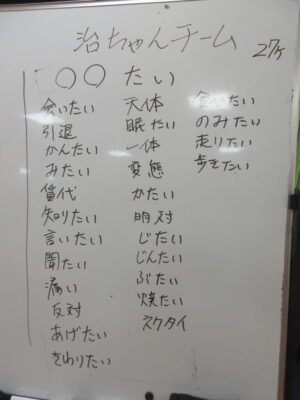 治ちゃんチーム 27ケ
○○たい
会いたい
引退
かんたい
みたい
賃代
知りたい
言いたい
聞たい
痛い
反対
あげたい
さわりたい
天体
眠たい
一体
変態
かたい
明対
じたい
じんたい
ぶたい
焼たい
スクタイ
食いたい
のみたい
走りたい
歩きたい